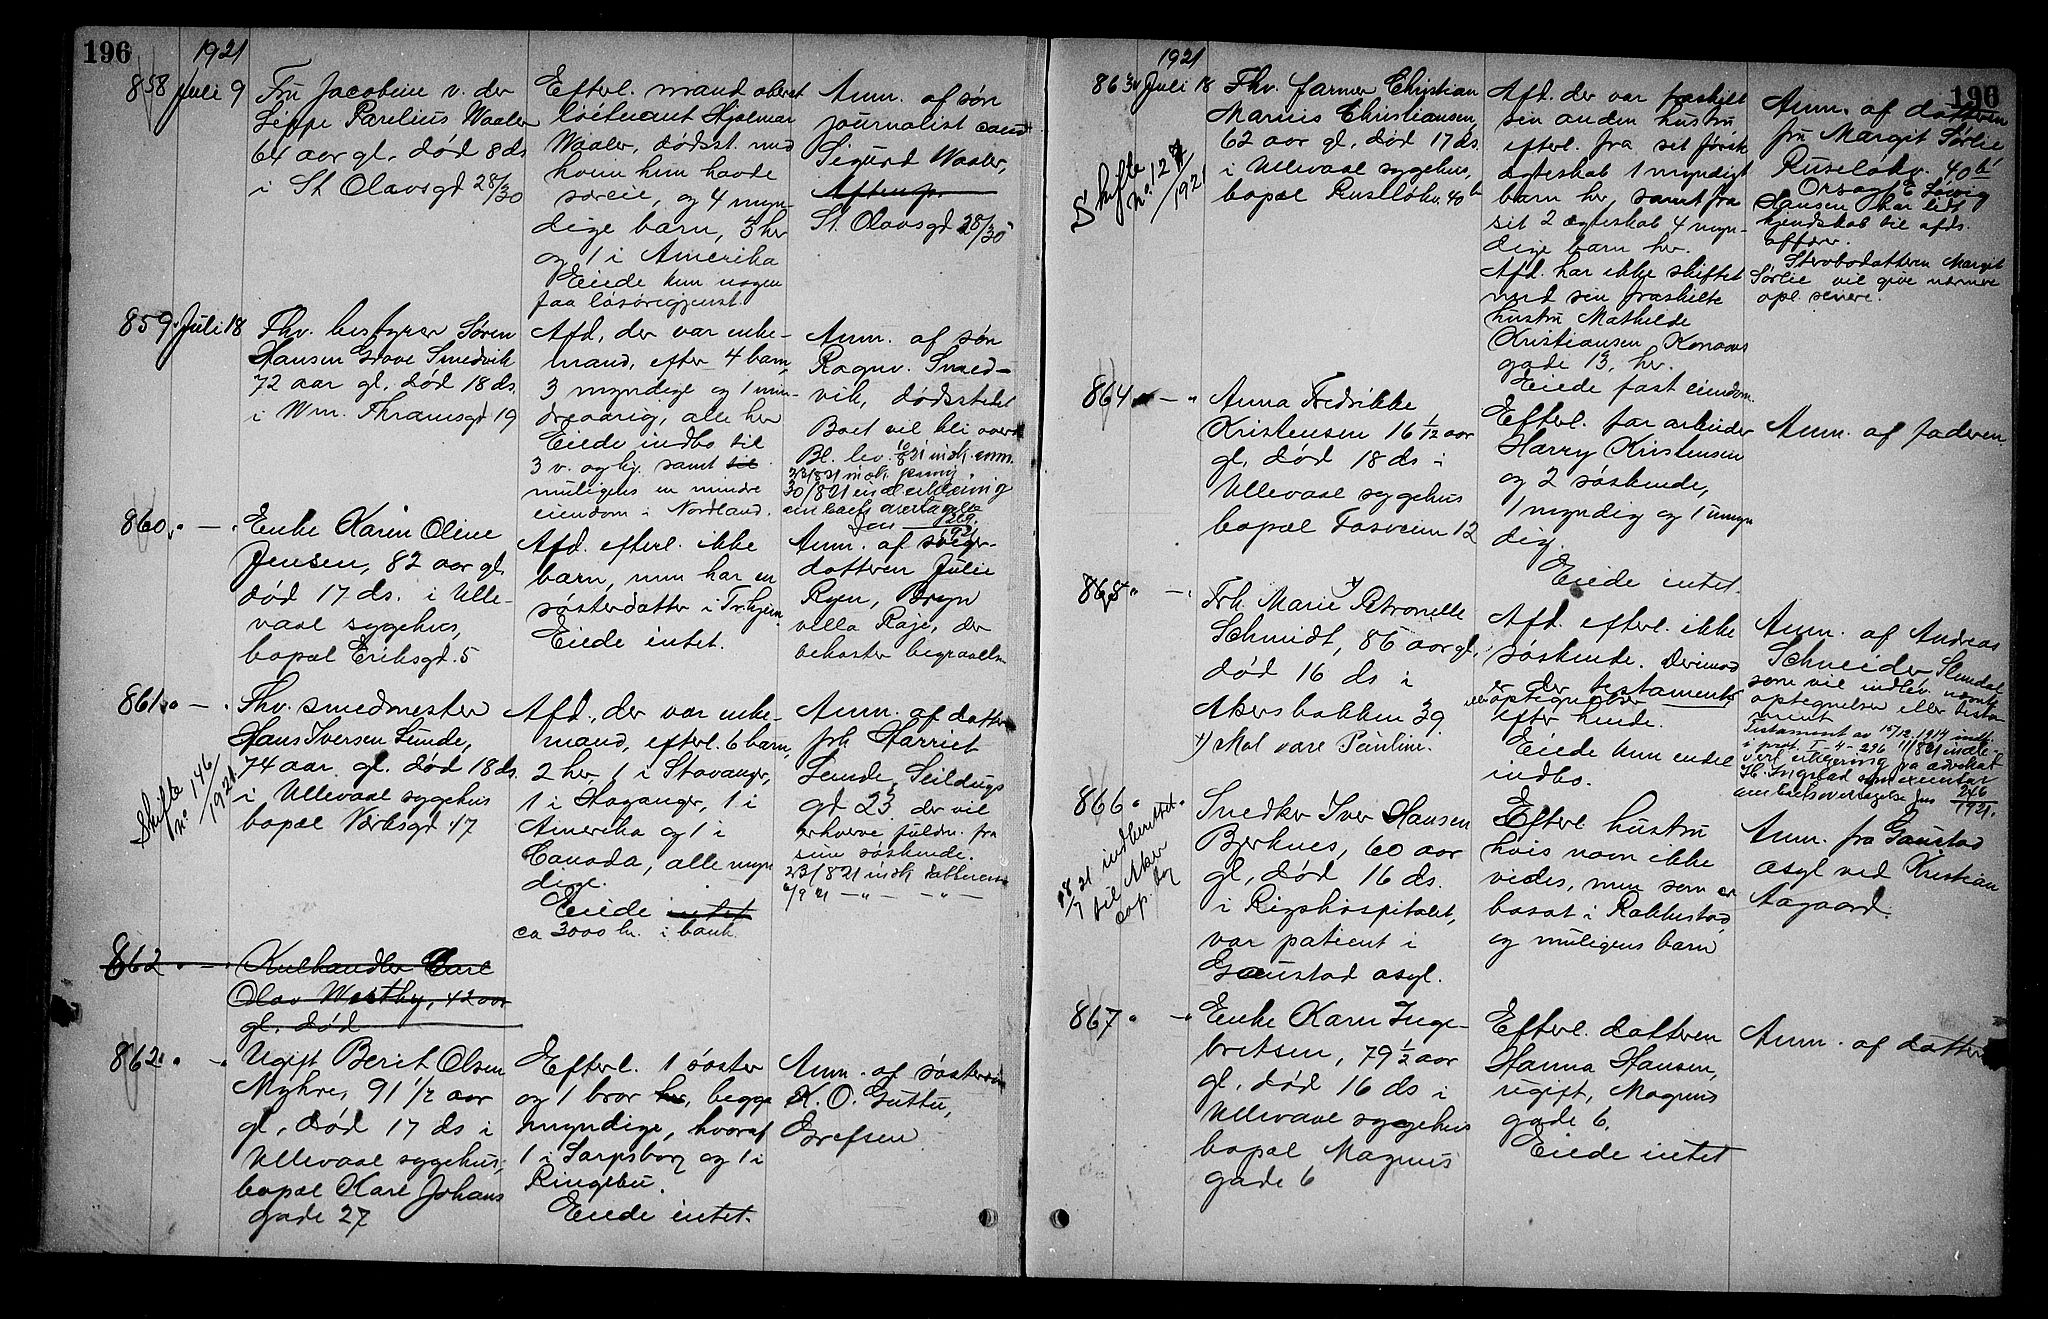 196
1921
858 Juli 9
Fru Jacobine v. der
Lippe Parelius Waaler
64 aar gl. død 8 ds
i St. Olavsgd 28/30
Efterl. mand oberst
løitnant Hjalmar
Waaler, dødsst. med
hvem hun havde
særeie, og 4 myn-
dige barn, 3 her
og 1 i Amerika
Eiede kun nogen
faa løsøregjenst.
Anm. af søn
journalist cand
Sigurd Waaler,
St. Olavsgd 28/30
859. Juli 18
Fhv. bestyrer Søren
Hansen Grove Smedvik
72 aar gl. død 18 ds.
i Wm. Thranesgd 19
Afd., der var enke-
mand, efter. 4 barn,
3 myndige og 1 min-
dreaarig, alle her
Eiede indbo til
3 v. og kj. samt til
muligens en mindre
eiendom i Nordland.
Anm. af søn
Ragnv. Smed-
vik, dødsstedet
Boet vil bli overt
Bl. lev. 10/8 21 indk. anm.
23/8 21 indk.
30/8 21 indk. erklæring
om boets overtagelse
860. — "
Enke Karen Oline
Jensen, 82 aar gl.
død 17 ds. i Ulle-
vaal sygehus,
bopæl Eriksgd. 5
Afd. efterl. ikke
barn, men har en
søsterdatter i Tr.hjem.
Eiede intet.
Anm. af svoger-
datteren Julie
Ryen, Bryn
villa Raje, der
bekoster begravelse
861. — "
Skifte
no 146/1921
Fhv. smedmester
Hans Iversen Lunde,
74 aar gl. død 18 ds.
i Ullevaal sygehus
bopæl Vørtsgd 17
Afd., der var enke-
mand, efterl. 6 barn,
2 her, 1 i Stavanger,
1 i Høganger, 1 i
Amerika og 1 i
Canada, alle myn
dige.
Eiede intet
ca 3000 kr. i bank.
Anm. af datter
frk Harriet
Lunde, Seildugs
gd 23, der vil
erhverve fuldm. fra
sine søskende.
23/8 21 indk datteren
6/9 21 — " — — " —
862 " — "
Kulhandler Carl
Olav Westby, 42 aar
gl. død
862. " — "
Ugift Berit Olsen
Myhre, 91 1/2 aar
gl. død 17 ds i
Ullevaal sygehus,
bopæl Karl Johans
gade 27
Efterl. 1 søster
og 1 bror her, begge
myndige, hvoraf
1 i Sarpsborg og 1 i
Ringebu.
Eiede intet.
Anm. af søstersøn
K. O. Guttu,
Grefsen
196
1921
863. Juli 18
Skifte
no. 127/1921
Fhv. farmer Christian
Marius Christiansen,
62 aar gl. død 17 ds.
i Ullevaal sygehus,
bopæl Ruseløkv. 40 b
Afd. der var fraskilt
sin anden hustru
efterl. fra sit første
ægteskab 1 myndigt
barn her, samt fra
sit 2 ægteskab 4 myn-
dige barn her.
Afd. har ikke skiftet
med sin fraskilte
hustru Mathilde
Kristiansen, Konows
gade 13, her.
Eiede fast eiendom.
Anm. af datteren
fru Margit Sørlie
Ruseløkv. 40 b
Orsagf. Lovig
Hansen har lidt
kjendskab til afds.
affærer.
Stervbodatteren Margit
Sørlie vil give nærmere
opl. senere.
864 " — "
Anna Fredrikke
Kristensen 16 1/12 aar
gl. død 18 ds i
Ullevaal sygehus
bopæl Fossvein 12
Efterl. far arbeider
Harry Kristensen
og 2 søskende,
1 myndig og 1 umyn
dig.
Eiede intet.
Anm. af faderen
865 " — "
Frk. Marie x) Petronelle
Schmidt, 86 aar gl.,
død 16 ds i
Akersbakken 39
x) skal være Pauline.
Afd. efterl. ikke
søskende. Derimod
er der testamente
eller optegnelser
efter hende.
Eiede kun endel
indbo.
Anm. af Andreas
Schneider Slemdal
som vil indlev. nævnte
optegnelser eller testa-
mente
Testament av 15/12 1914 indf.
i prot. I-4-296 11/8 21 indle-
vert erklæring fra advokat
H. Ingstad som executor
om boets overtagelse Jns 246/1921.
866 " — "
18/7 21 indberettet
til Aker
Snedker Iver Hansen
Bjerknes, 60 aar
gl, død 16 ds.
i Rigshospitalet,
var patient i
Gaustad asyl.
Efterl hustru
hvis navn ikke
vides, men som er
bosat i Rakkestad,
og muligens barn
Anm. fra Gaustad
asyl ved Kristian
Aagaard.
867 " — "
Enke Karn Inge-
bretsen, 79 1/2 aar
gl, død 16 ds i
Ullevaal sygehus
bopæl Magnus
gade 6
Efterl. datteren
Hanna Hansen,
ugift, Magnus
gade 6.
Eiede intet
Anm. af datter